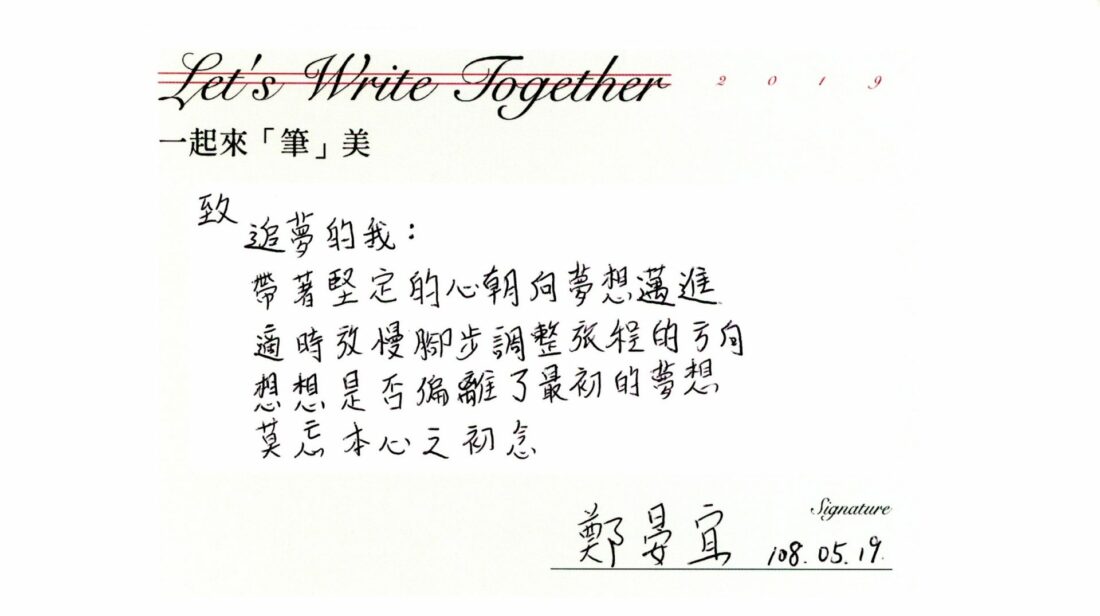 Let's Write Together 2019
一起來「筆」美
致
追夢的我：
帶著堅定的心朝向夢想邁進
適時放慢腳步調整旅程的方向
想想是否偏離了最初的夢想
莫忘本心之初念
Signature
鄭晏宜 108.05.19.